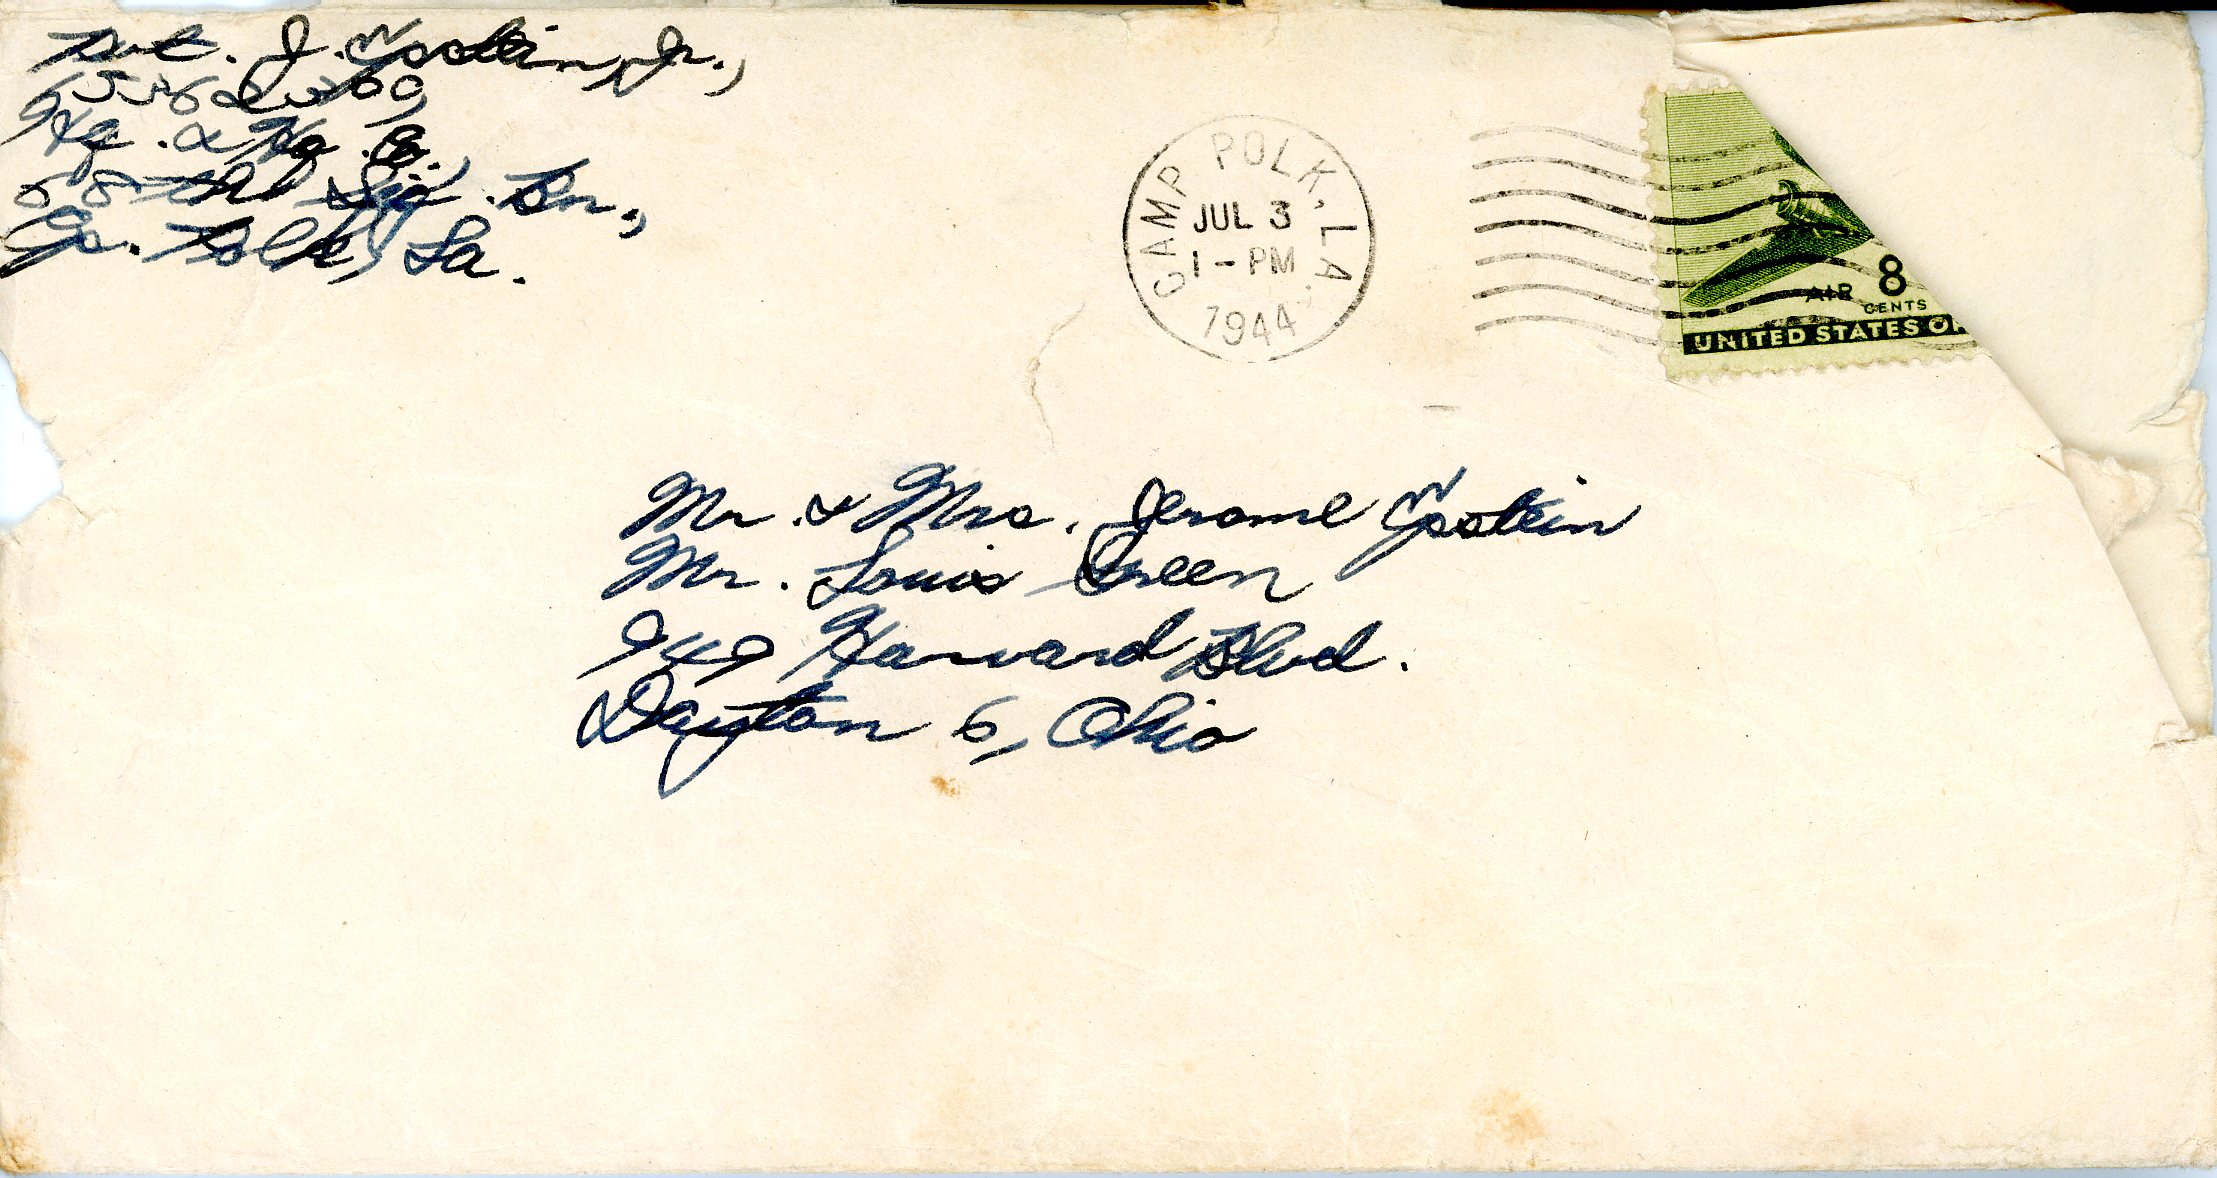 Pvt. J. Epstein, Jr.,
Hq. & Hq. Co.,
68th Sig. Bn.,
Cp. Polk, La.
CAMP POLK, LA.
JUL 3
1 - PM
1944
AIR 8
CENTS
UNITED STATES OF
Mr. & Mrs. Jerome Epstein
Mr. Louis Green
949 Harvard Blvd.
Dayton 6, Ohio